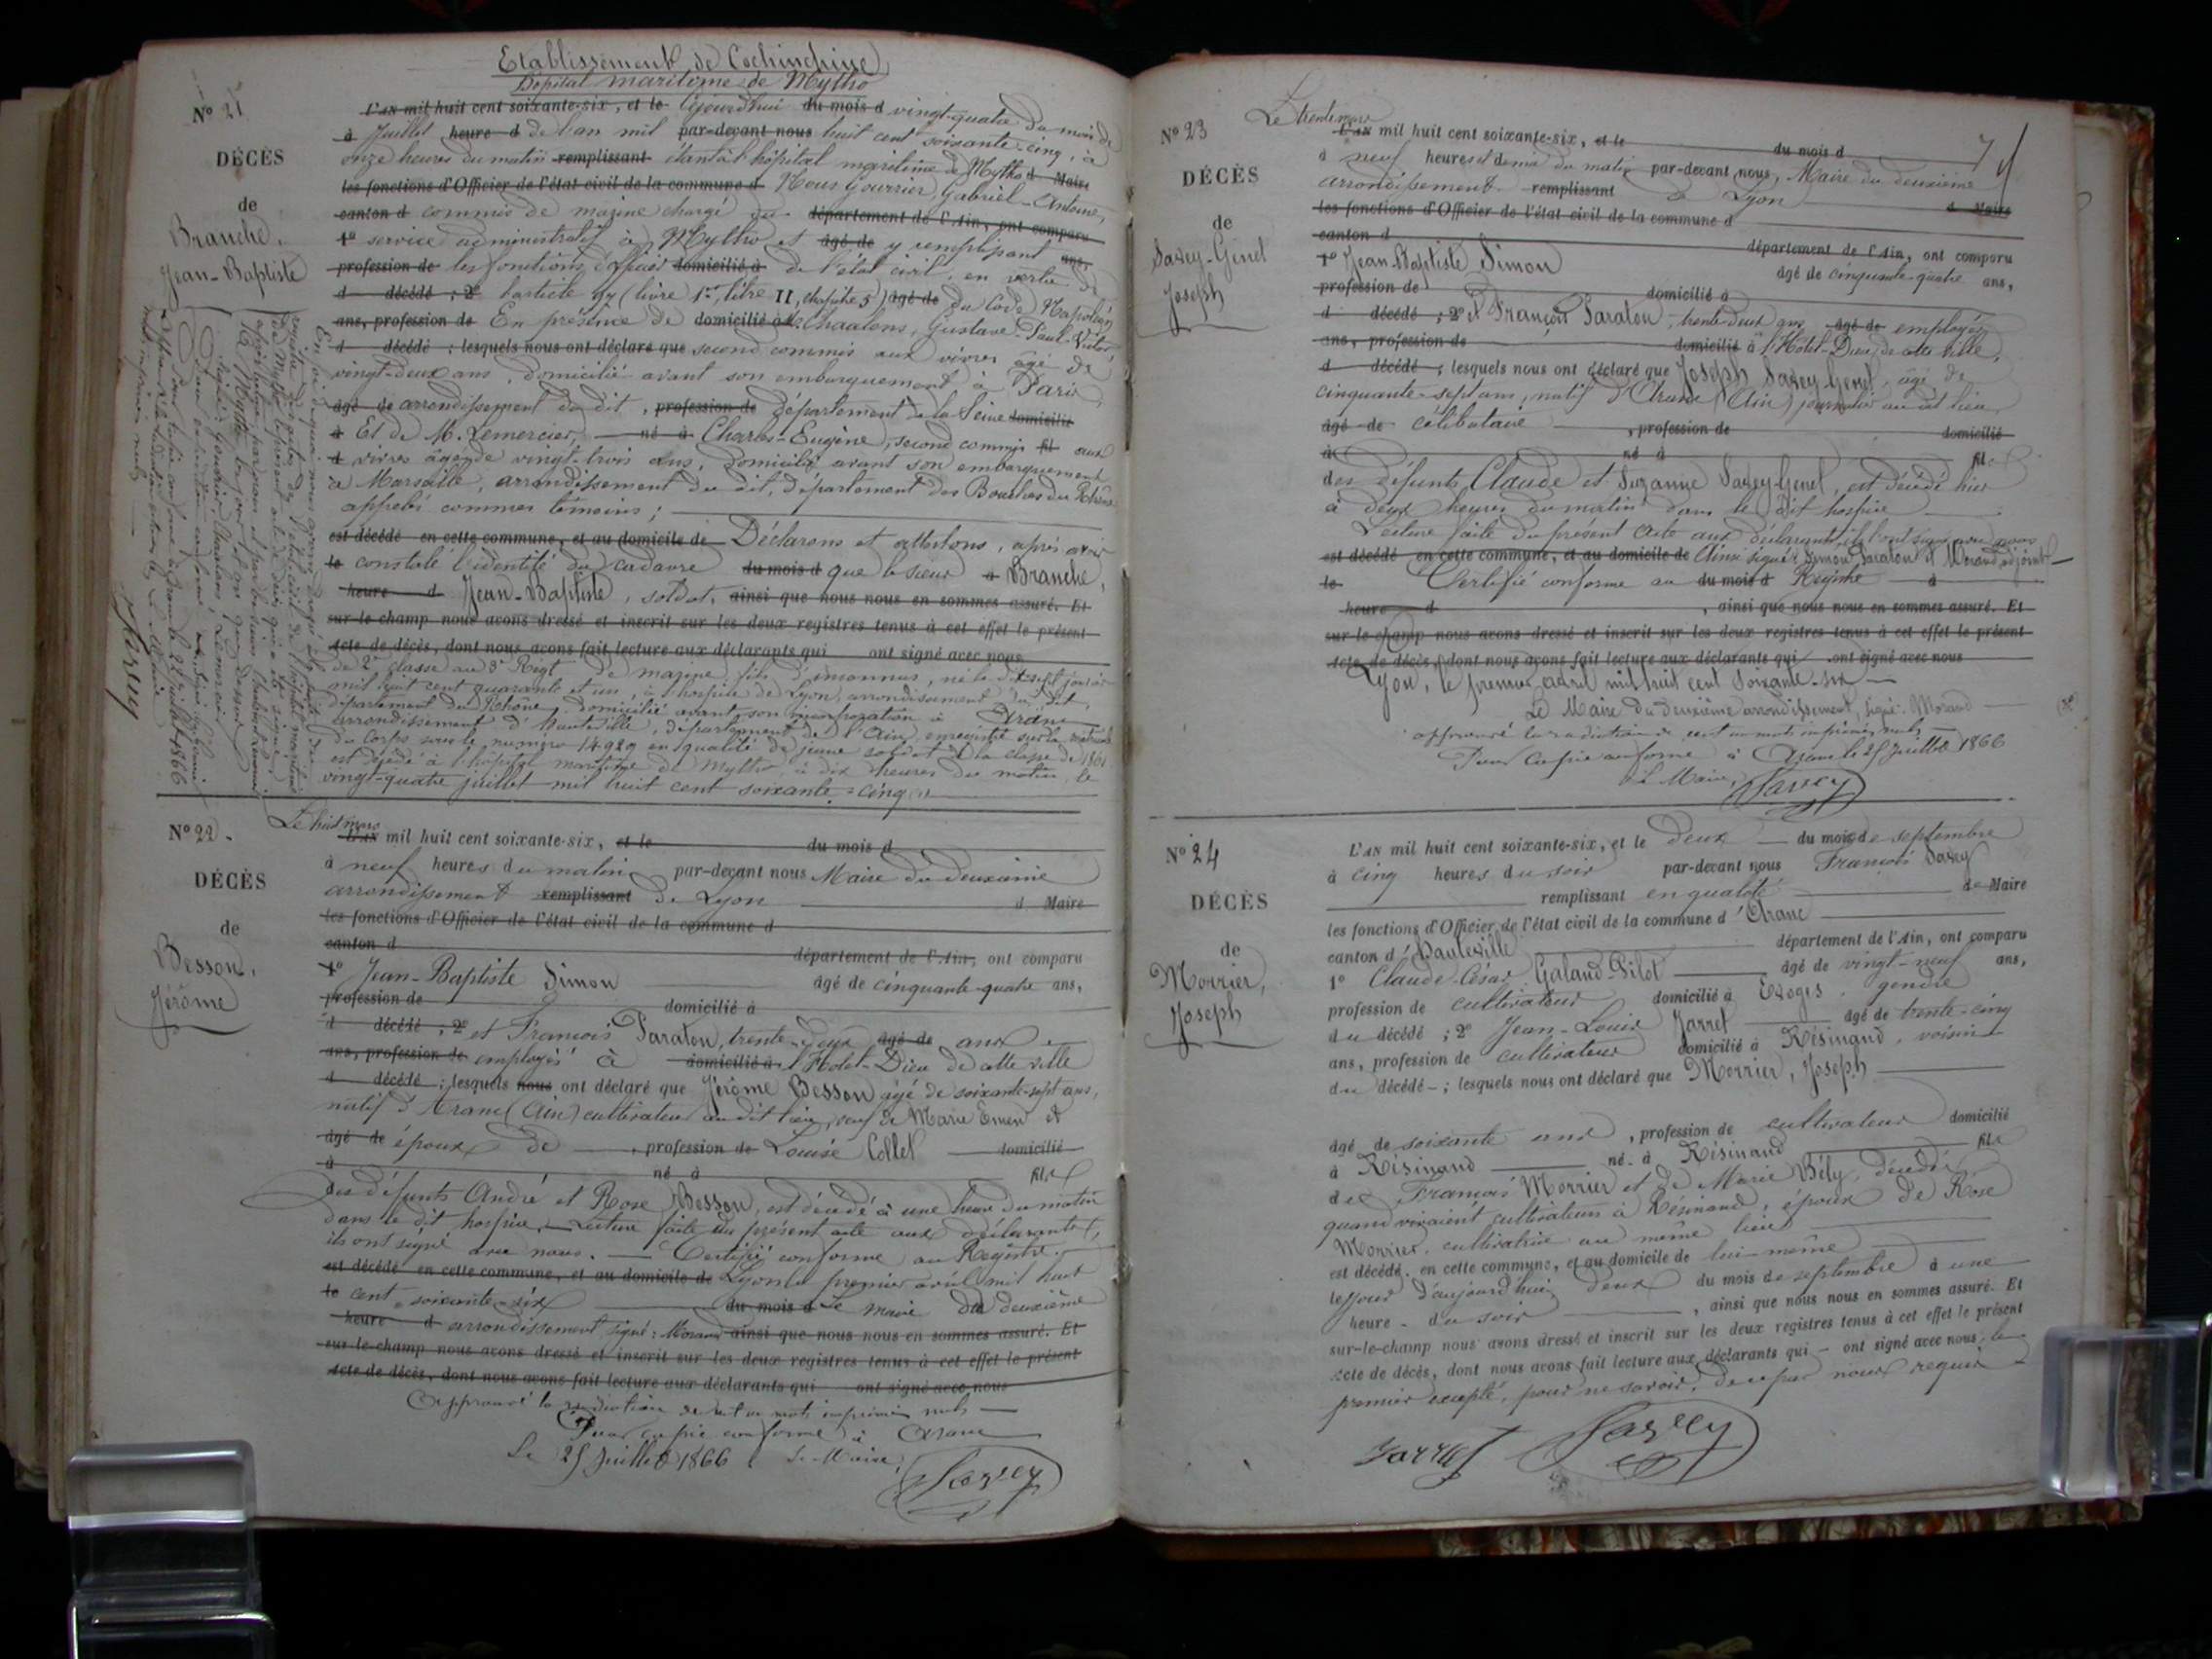 Etablissement de Cochinchine
Hôpital maritime de Mytho
N° 21
DÉCÈS
de
Branche,
Jean-Baptiste
L'AN mil huit cent soixante-six, et le Cejourd'hui du mois d vingt-quatre du mois de
à Juillet heure d de l'an mil par-devant nous huit cent soixante-cinq, à
onze heures du matin remplissant étant à l'hôpital maritime de Mytho d Maire
les fonctions d'Officier de l'état civil de la commune d Nous Gourrier, Gabriel-Antoine,
canton d commis de marine chargé du département de l'Ain, ont comparu
1° service administratif à Mytho et âgé de y remplissant ans,
profession de les fonctions d'officier domicilié à de l'état civil, en vertu de
d décédé ; 2° l'article 97 (livre 1er, titre II, chapitre 5) âgé de du Code Napoléon
ans, profession de En présence de domicilié à Chaalons, Gustave-Paul-Victor,
d décédé ; lesquels nous ont déclaré que second commis aux vivres âgé de
vingt-deux ans, domicilié avant son embarquement à Paris,
âgé de arrondissement du dit, profession de département de la Seine domicilié
à Et de M. Lemercier, né à Charles-Eugène, second commis fil aux
d vivres âgé de vingt-trois ans, domicilié avant son embarquement
à Marseille, arrondissement du dit, département des Bouches du Rhône
appelés comme témoins ;
est décédé en cette commune, et au domicile de Déclarons et attestons, après avoir
le constaté l'identité du cadavre du mois d que le sieur à Branche,
heure d Jean-Baptiste, soldat, ainsi que nous nous en sommes assuré. Et
sur-le-champ nous avons dressé et inscrit sur les deux registres tenus à cet effet le présent
acte de décès, dont nous avons fait lecture aux déclarants qui ont signé avec nous
de 2e classe au 3e Régt de marine, fils d'inconnus, né le dix-sept janvier
mil huit cent quarante et un, à l'hospice de Lyon, arrondissement du dit,
département du Rhône, domicilié avant son incorporation à Aranc
arrondissement d'Hauteville, département de l'Ain, enregistré sur la matricule
du Corps sous le numéro 14929 en qualité de jeune soldat de la classe de 1861
est décédé à l'hôpital maritime de Mytho, à dix heures du matin, le
vingt-quatre juillet mil huit cent soixante-cinq.
Sarcey
N° 22.
DÉCÈS
de
Besson,
Jérôme
Le huit mars
L'AN mil huit cent soixante-six, et le du mois d
à neuf heures du matin, par-devant nous Maire du deuxième
arrondissement remplissant de Lyon d Maire
les fonctions d'Officier de l'état civil de la commune d
canton d département de l'Ain, ont comparu
1° Jean-Baptiste Simon âgé de cinquante-quatre ans,
profession de domicilié à
d décédé ; 2° et François Paraton, trente-deux âgé de ans
ans, profession de employés à domicilié à l'Hôtel-Dieu de cette ville
d décédé ; lesquels nous ont déclaré que Jérôme Besson âgé de soixante-sept ans,
natif d'Aranc (Ain) cultivateur au dit lieu, veuf de Marie et
âgé de époux de , profession de Louise Collet domicilié
à né à fils
des défunts André et Rose Besson, est décédé à une heure du matin
dans le dit hospice. Lecture faite du présent acte aux déclarants,
ils ont signé avec nous. Certifié conforme au Registre.
est décédé en cette commune, et au domicile de Lyon le premier avril mil huit
le cent soixante-six du mois d Le maire du deuxième
heure d arrondissement signé : Morand ainsi que nous nous en sommes assuré. Et
sur-le-champ nous avons dressé et inscrit sur les deux registres tenus à cet effet le présent
acte de décès, dont nous avons fait lecture aux déclarants qui ont signé avec nous
Approuvé la radiation de mots imprimés nuls
Pour copie conforme à Aranc
Le 25 Juillet 1866 Le Maire,
Sarcey
N° 23
DÉCÈS
de
Savey-Genel
Joseph
Le trente mars
L'AN mil huit cent soixante-six, et le du mois d
à neuf heures et demie du matin par-devant nous, Maire du deuxième
arrondissement remplissant de Lyon d Maire
les fonctions d'Officier de l'état civil de la commune d
canton d département de l'Ain, ont comparu
1° Jean-Baptiste Simon âgé de cinquante-quatre ans,
profession de domicilié à
d décédé ; 2° et François Paraton, trente-deux ans âgé de employés
ans, profession de domicilié à l'Hôtel-Dieu de cette ville,
d décédé ; lesquels nous ont déclaré que Joseph Savey-Genel, âgé de
cinquante-sept ans, natif d'Aranc (Ain) journalier au dit lieu
âgé de célibataire , profession de domicilié
à né à fils
des défunts Claude et Suzanne Savey-Genel, est décédé hier
à deux heures du matin dans le dit hospice
Lecture faite du présent acte aux déclarants, ils l'ont signé avec nous
est décédé en cette commune, et au domicile de Ainsi signé : Simon, Paraton et Morand, adjoint
le Certifié conforme au du mois d Registre à
heure d , ainsi que nous nous en sommes assuré. Et
sur-le-champ nous avons dressé et inscrit sur les deux registres tenus à cet effet le présent
acte de décès, dont nous avons fait lecture aux déclarants qui ont signé avec nous
Lyon, le premier avril mil huit cent soixante-six
Le Maire du deuxième arrondissement, signé : Morand
approuvé la radiation de cent un mots imprimés nuls
Pour Copie conforme à Aranc le 25 Juillet 1866
Le Maire,
Sarcey
N° 24
DÉCÈS
de
Morrier,
Joseph
L'AN mil huit cent soixante-six, et le deux du mois de septembre
à cinq heures du soir par-devant nous François Savey
remplissant en qualité de Maire
les fonctions d'Officier de l'état civil de la commune d'Aranc
canton d'Hauteville département de l'Ain, ont comparu
1° Claude-César Galand-Pilot âgé de vingt-neuf ans,
profession de cultivateur domicilié à Evoges, gendre
du décédé ; 2° Jean-Louis Jarret âgé de trente-cinq
ans, profession de cultivateur domicilié à Résinand, voisin
du décédé ; lesquels nous ont déclaré que Morrier, Joseph
âgé de soixante ans, profession de cultivateur domicilié
à Résinand né à Résinand fils
de François Morrier et de Marie Bély, décédés,
quand vivaient cultivateurs à Résinand, époux de Rose
Morrier, cultivatrice au même lieu
est décédé en cette commune, et au domicile de lui-même
le jour d'aujourd'hui, deux du mois de septembre à une
heure du soir , ainsi que nous nous en sommes assuré. Et
sur-le-champ nous avons dressé et inscrit sur les deux registres tenus à cet effet le présent
acte de décès, dont nous avons fait lecture aux déclarants qui ont signé avec nous, le
premier excepté, pour ne savoir, de ce par nous requis
Jarret Sarcey